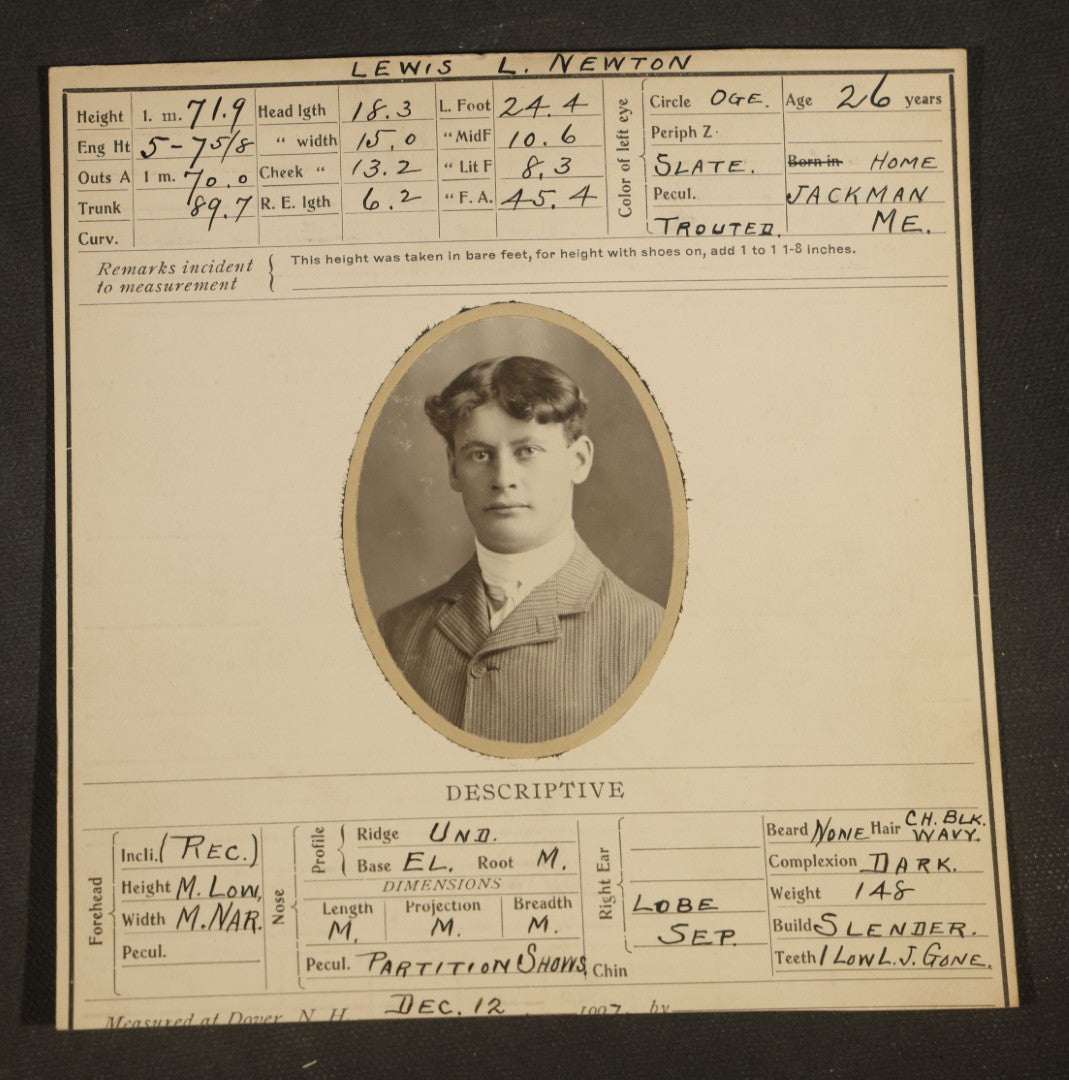 LEWIS L. NEWTON
Height 1. m. 71.9 Head lgth 18.3 L. Foot 24.4 Color of left eye Circle OGE. Age 26 years
Eng Ht 5-7 5/8 " width 15.0 " MidF 10.6 Periph Z.
Outs A 1 m. 70.0 Cheek " 13.2 " Lit F 8.3 SLATE. Born in HOME
Trunk 89.7 R. E. lgth 6.2 " F. A. 45.4 Pecul. JACKMAN
Curv. TROUTED. ME.
Remarks incident to measurement This height was taken in bare feet, for height with shoes on, add 1 to 1 1-8 inches.
DESCRIPTIVE
Forehead Incli. (REC.) Nose Profile Ridge UND. Right Ear Beard NONE Hair CH. BLK. WAVY.
Height M. LOW, Base EL. Root M. Complexion DARK.
Width M. NAR. DIMENSIONS LOBE Weight 148
Length Projection Breadth
M. M. M. SEP. Build SLENDER.
Pecul. Pecul. PARTITION SHOWS, Chin Teeth 1 LOW L. J. GONE.
Measured at Dover, N. H. DEC. 12 1907. by